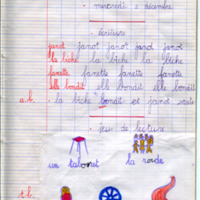 mercredi 2 décembre
écriture
janot janot janot janot janot
la biche la biche la biche
fanette fanette fanette fanette
elle bondit elle bondit elle bondit
la biche bondit et janot saute
jeu de lecture
un tabouret la ronde
t.b.